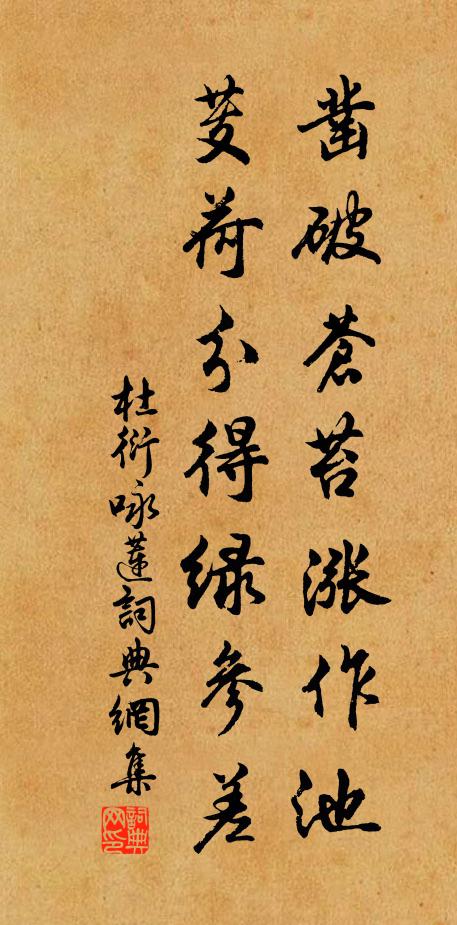 凿破苍苔涨作池
芰荷分得绿参差
杜衍咏莲词典网集
词典网印